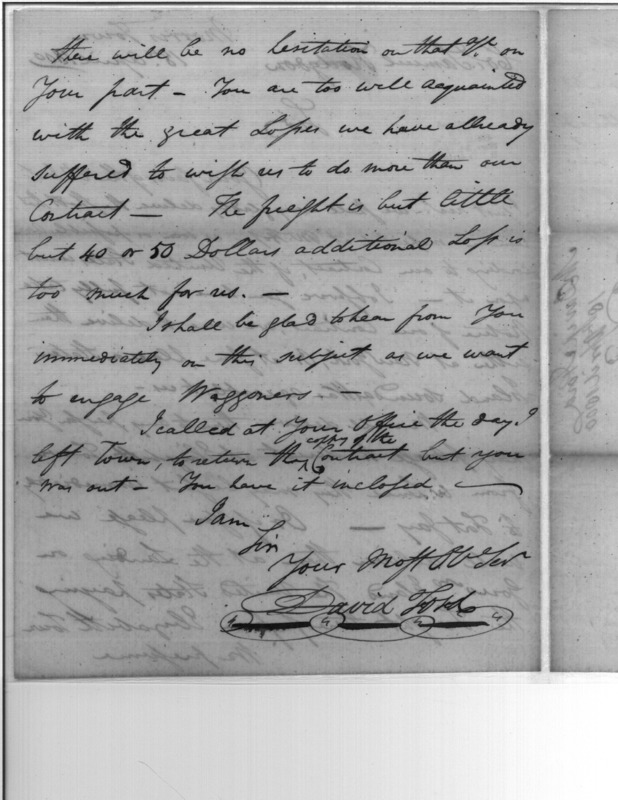 there will be no hesitation on that on
Your part - You are too well acquainted
with the great Losses we have allready
suffered to wish us to do more than our
Contract - The freight is but little
but 40 or 50 Dollars additional Loss is
too much for us. -
I shall be glad to hear from You
immediately on this subject as we want
to engage Waggoners -
I called at Your Office the day I
left Town, to return the copy of the Contract but you
was out - You have it inclosed
I am
Sir
Your Most Ob. Ser.
David Ford